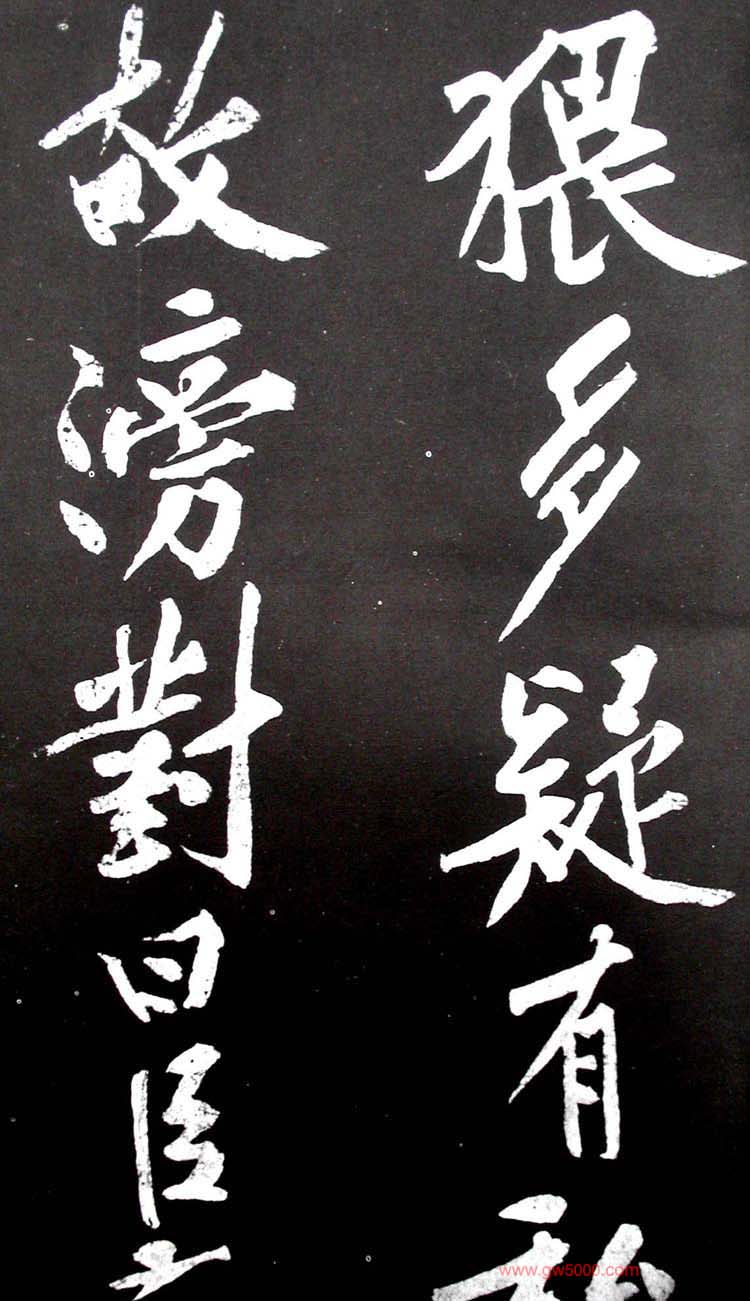 猥多疑有私
故滂對曰臣
www.gw5000.com